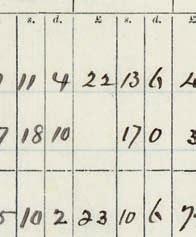 s. d. £ s. d. £
11 4 22 13 6 4
7 18 10 17 0 3
5 10 2 23 10 6 7